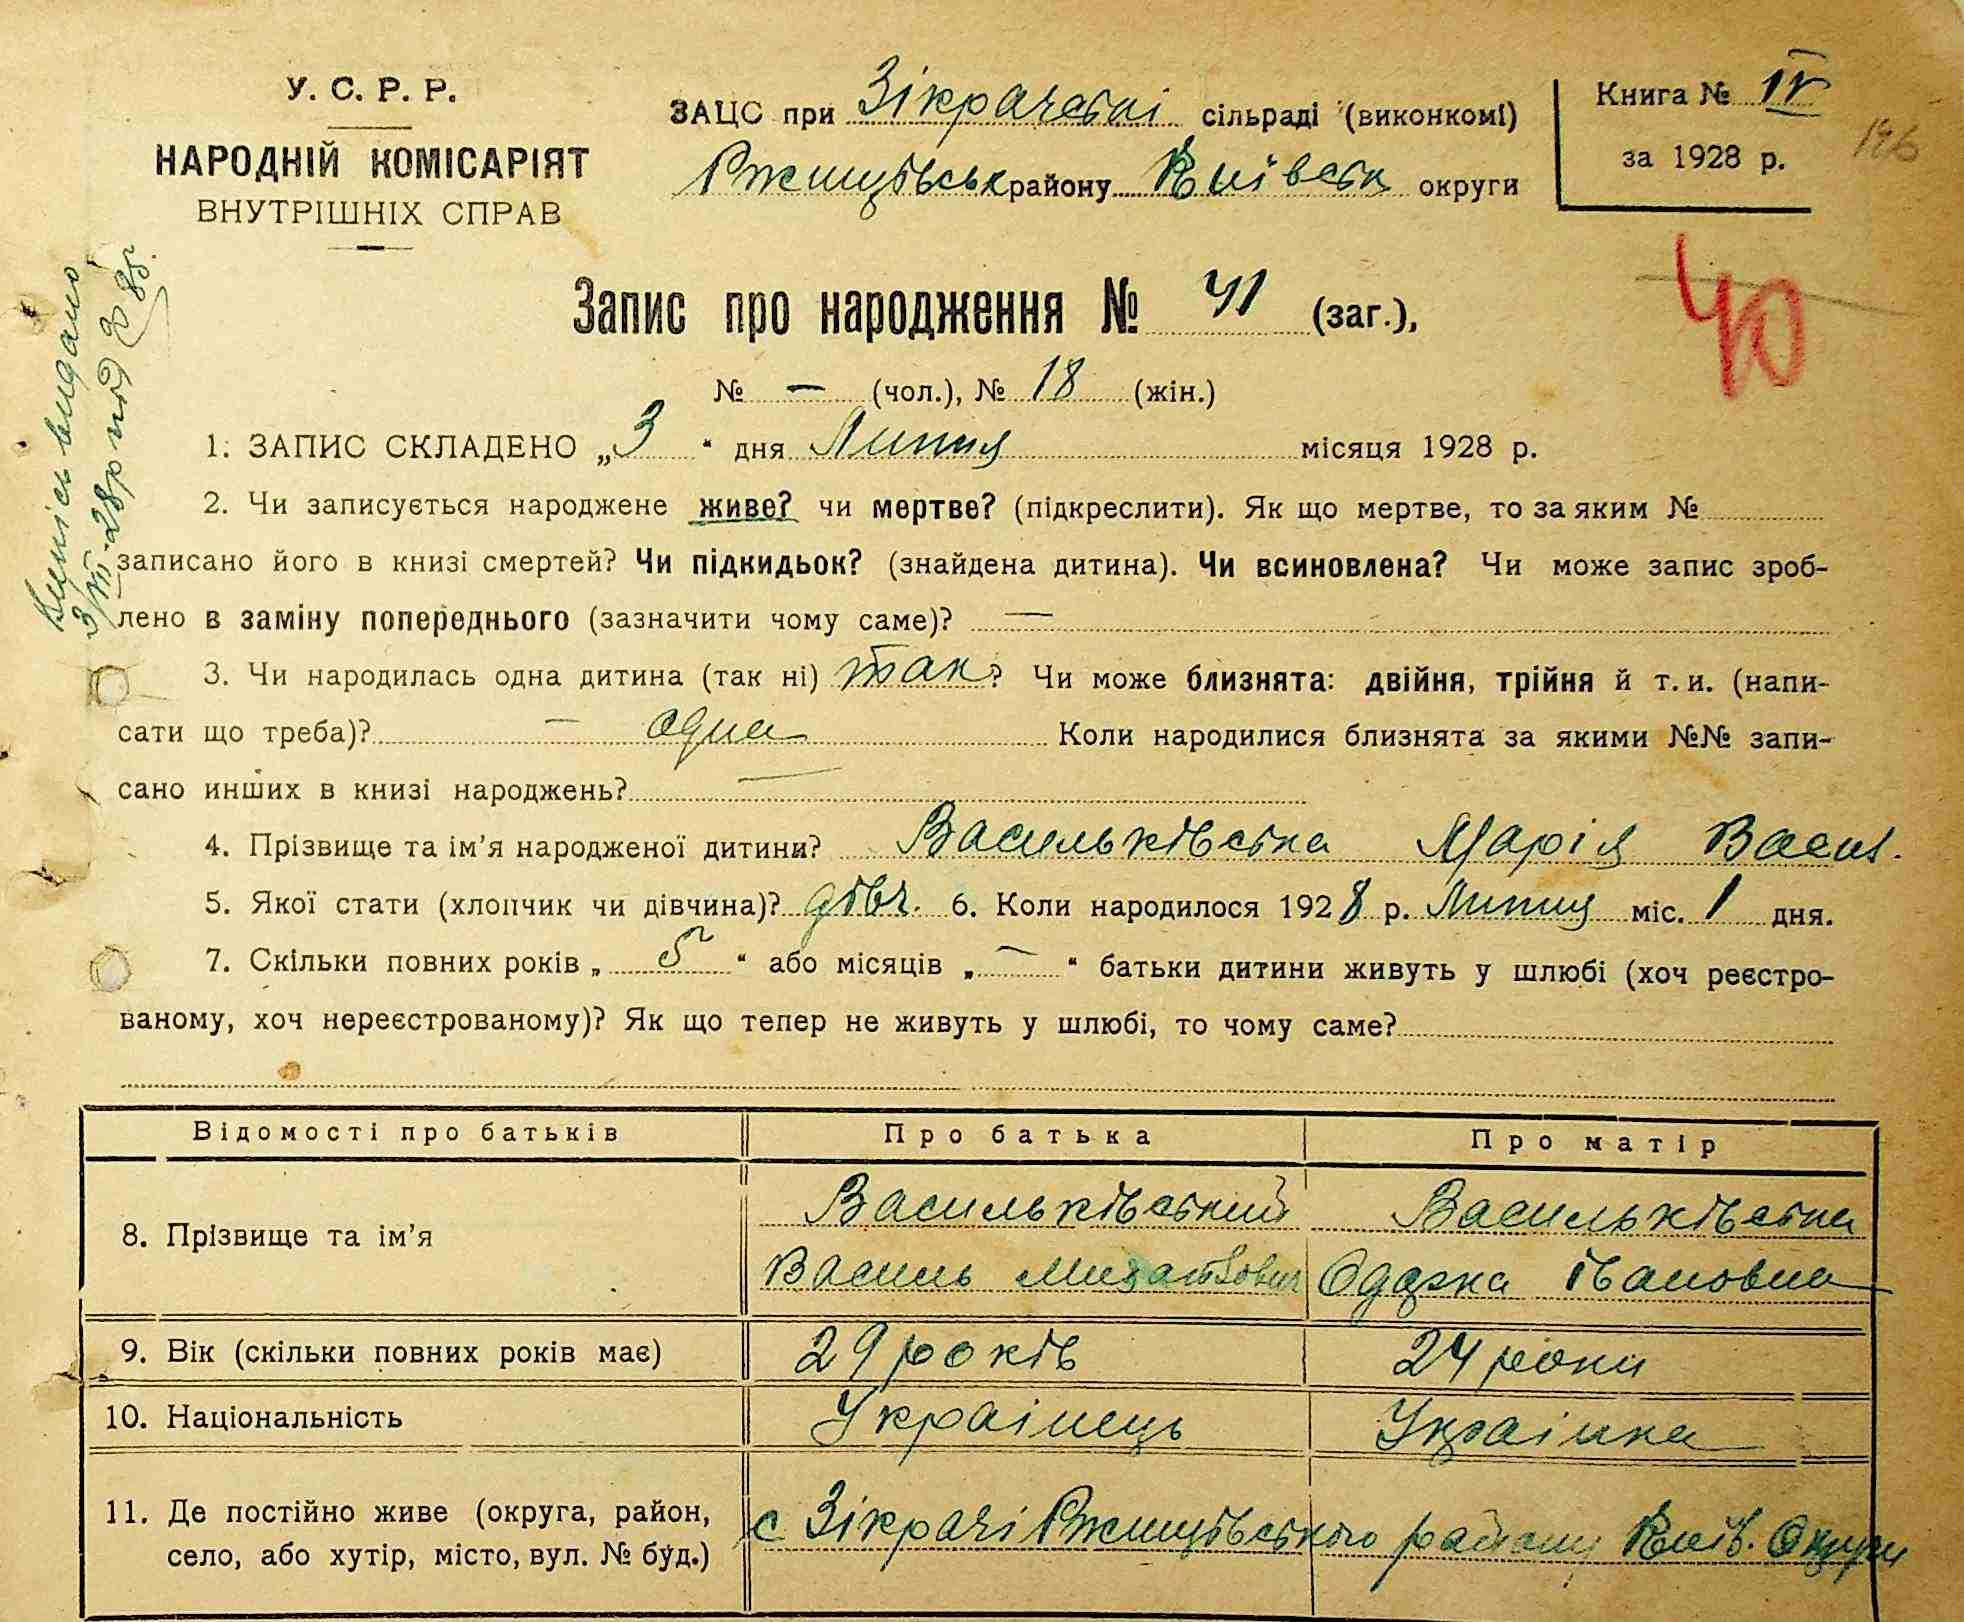 У. С. Р. Р.
НАРОДНІЙ КОМІСАРІЯТ
ВНУТРІШНІХ СПРАВ
ЗАЦС при Зікрачевськ сільраді (виконкомі)
Ржищівськ району Київськ округи
Книга № IV
за 1928 р.
126
40
Випись видано
3/VII-28р під № 85
Запис про народження № 41 (заг.),
№ — (чол.), № 18 (жін.)
1. ЗАПИС СКЛАДЕНО „ 3 “ дня Липня місяця 1928 р.
2. Чи записується народжене живе? чи мертве? (підкреслити). Як що мертве, то за яким №
записано його в книзі смертей? Чи підкидьок? (знайдена дитина). Чи всиновлена? Чи може запис зроб-
лено в заміну попереднього (зазначити чому саме)? —
3. Чи народилась одна дитина (так ні) так? Чи може близнята: двійня, трійня й т. и. (напи-
сати що треба)? — одна Коли народилися близнята за якими №№ запи-
сано инших в книзі народжень? —
4. Прізвище та ім'я народженої дитини? Васильківська Марія Васил.
5. Якої стати (хлопчик чи дівчина)? дівч. 6. Коли народилося 1928 р. Липня міс. 1 дня.
7. Скільки повних років „ 5 “ або місяців „ — “ батьки дитини живуть у шлюбі (хоч реєстро-
ваному, хоч нереєстрованому)? Як що тепер не живуть у шлюбі, то чому саме?
Відомості про батьків Про батька Про матір
8. Прізвище та ім'я
Васильківський Васильківська
Василь Одарка Івановна
9. Вік (скільки повних років має) 29 років 24 роки
10. Національність Українець Українка
11. Де постійно живе (округа, район,
село, або хутір, місто, вул. № буд.)
с Зікрачі Ржищівського району Київ. Округи